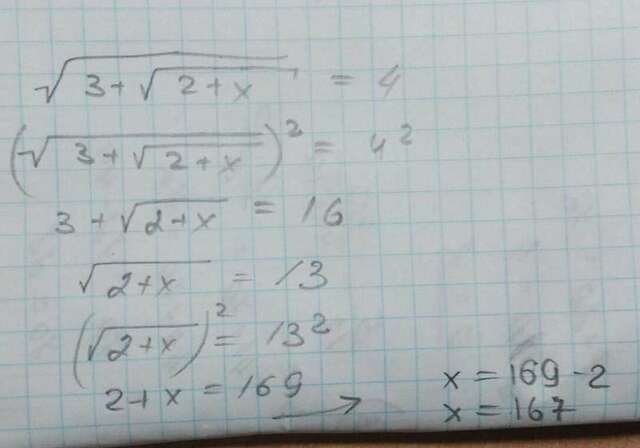 √(3+√(2+x)) = 4
(√(3+√(2+x)))² = 4²
3+√(2+x) = 16
√(2+x) = 13
(√(2+x))² = 13²
2+x = 169 → x = 169-2
x = 167